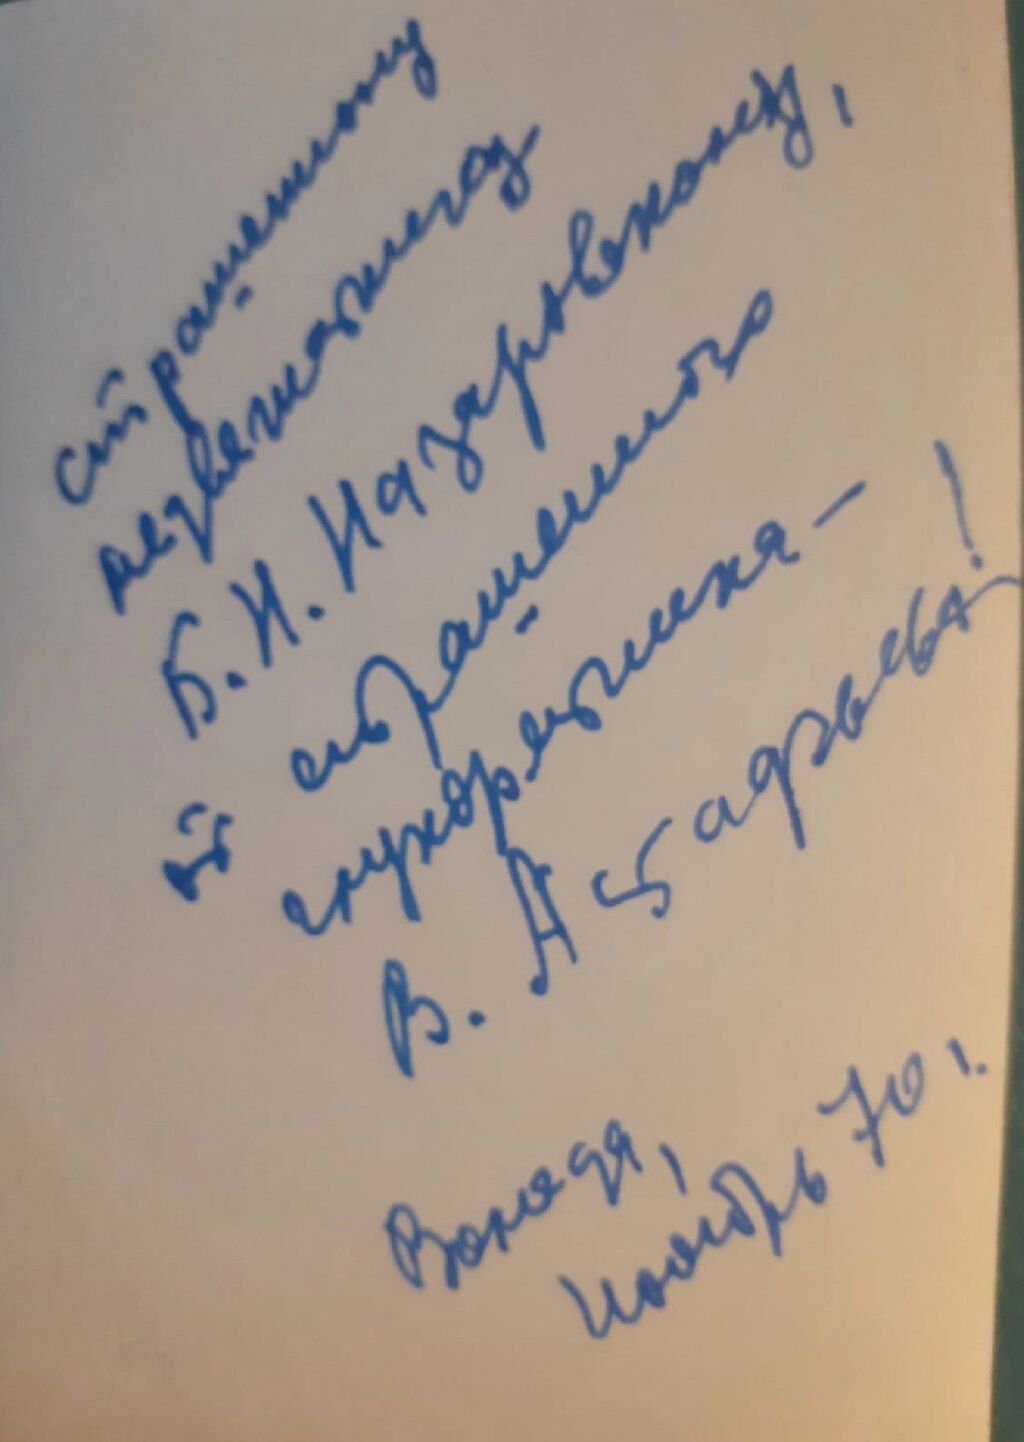 страшному
Б. Н. Назаровскому,
от страшного
В. Астафьева!
Вологда,
ноябрь 70 г.